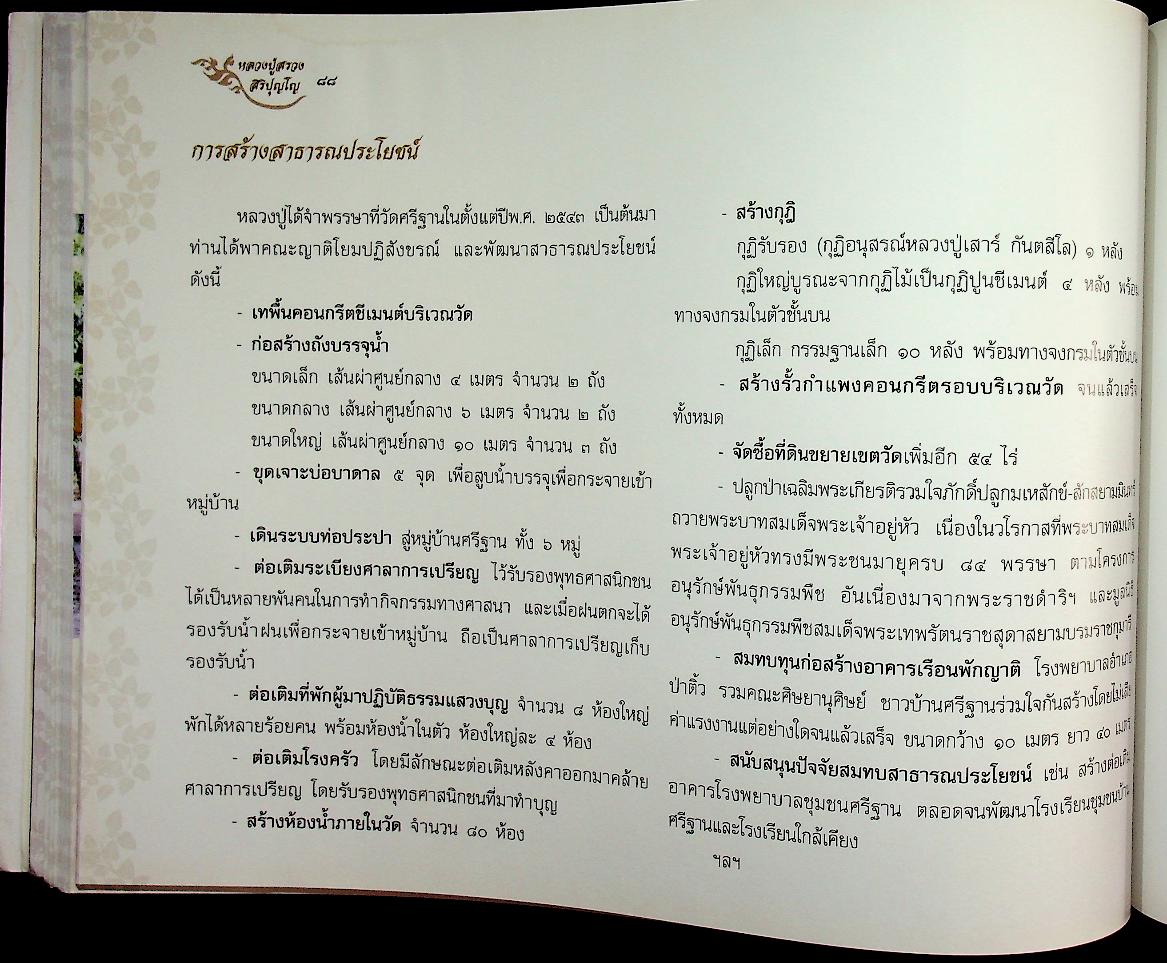 หลวงปู่สรวง
สิริปุญโญ ๘๘
การสร้างสาธารณประโยชน์
หลวงปู่ได้จำพรรษาที่วัดศรีฐานในตั้งแต่ปีพ.ศ. ๒๕๔๓ เป็นต้นมา
ท่านได้พาคณะญาติโยมปฏิสังขรณ์ และพัฒนาสาธารณประโยชน์
ดังนี้
- เทพื้นคอนกรีตซีเมนต์บริเวณวัด
- ก่อสร้างถังบรรจุน้ำ
ขนาดเล็ก เส้นผ่าศูนย์กลาง ๔ เมตร จำนวน ๒ ถัง
ขนาดกลาง เส้นผ่าศูนย์กลาง ๖ เมตร จำนวน ๒ ถัง
ขนาดใหญ่ เส้นผ่าศูนย์กลาง ๑๐ เมตร จำนวน ๓ ถัง
- ขุดเจาะบ่อบาดาล ๕ จุด เพื่อสูบน้ำบรรจุเพื่อกระจายเข้า
หมู่บ้าน
- เดินระบบท่อประปา สู่หมู่บ้านศรีฐาน ทั้ง ๖ หมู่
- ต่อเติมระเบียงศาลาการเปรียญ ไว้รับรองพุทธศาสนิกชน
ได้เป็นหลายพันคนในการทำกิจกรรมทางศาสนา และเมื่อฝนตกจะได้
รองรับน้ำฝนเพื่อกระจายเข้าหมู่บ้าน ถือเป็นศาลาการเปรียญเก็บ
รองรับน้ำ
- ต่อเติมที่พักผู้มาปฏิบัติธรรมแสวงบุญ จำนวน ๘ ห้องใหญ่
พักได้หลายร้อยคน พร้อมห้องน้ำในตัว ห้องใหญ่ละ ๔ ห้อง
- ต่อเติมโรงครัว โดยมีลักษณะต่อเติมหลังคาออกมาคล้าย
ศาลาการเปรียญ โดยรับรองพุทธศาสนิกชนที่มาทำบุญ
- สร้างห้องน้ำภายในวัด จำนวน ๘๐ ห้อง
- สร้างกุฏิ
กุฏิรับรอง (กุฏิอนุสรณ์หลวงปู่เสาร์ กันตสีโล) ๑ หลัง
กุฏิใหญ่บูรณะจากกุฏิไม้เป็นกุฏิปูนซีเมนต์ ๔ หลัง พร้อม
ทางจงกรมในตัวชั้นบน
กุฏิเล็ก กรรมฐานเล็ก ๑๐ หลัง พร้อมทางจงกรมในตัวชั้นบน
- สร้างรั้วกำแพงคอนกรีตรอบบริเวณวัด จนแล้วเสร็จ
ทั้งหมด
- จัดซื้อที่ดินขยายเขตวัดเพิ่มอีก ๕๔ ไร่
- ปลูกป่าเฉลิมพระเกียรติรวมใจภักดิ์ปลูกมเหสักข์-สักสยามมินทร์
ถวายพระบาทสมเด็จพระเจ้าอยู่หัว เนื่องในวโรกาสที่พระบาทสมเด็จ
พระเจ้าอยู่หัวทรงมีพระชนมายุครบ ๘๔ พรรษา ตามโครงการ
อนุรักษ์พันธุกรรมพืช อันเนื่องมาจากพระราชดำริฯ และมูลนิธิ
อนุรักษ์พันธุกรรมพืชสมเด็จพระเทพรัตนราชสุดาสยามบรมราชกุมารี
- สมทบทุนก่อสร้างอาคารเรือนพักญาติ โรงพยาบาลอำเภอ
ป่าติ้ว รวมคณะศิษยานุศิษย์ ชาวบ้านศรีฐานร่วมใจกันสร้างโดยไม่เสีย
ค่าแรงงานแต่อย่างใดจนแล้วเสร็จ ขนาดกว้าง ๑๐ เมตร ยาว ๔๐ เมตร
- สนับสนุนปัจจัยสมทบสาธารณประโยชน์ เช่น สร้างต่อเติม
อาคารโรงพยาบาลชุมชนศรีฐาน ตลอดจนพัฒนาโรงเรียนชุมชนบ้าน
ศรีฐานและโรงเรียนใกล้เคียง
ฯลฯ